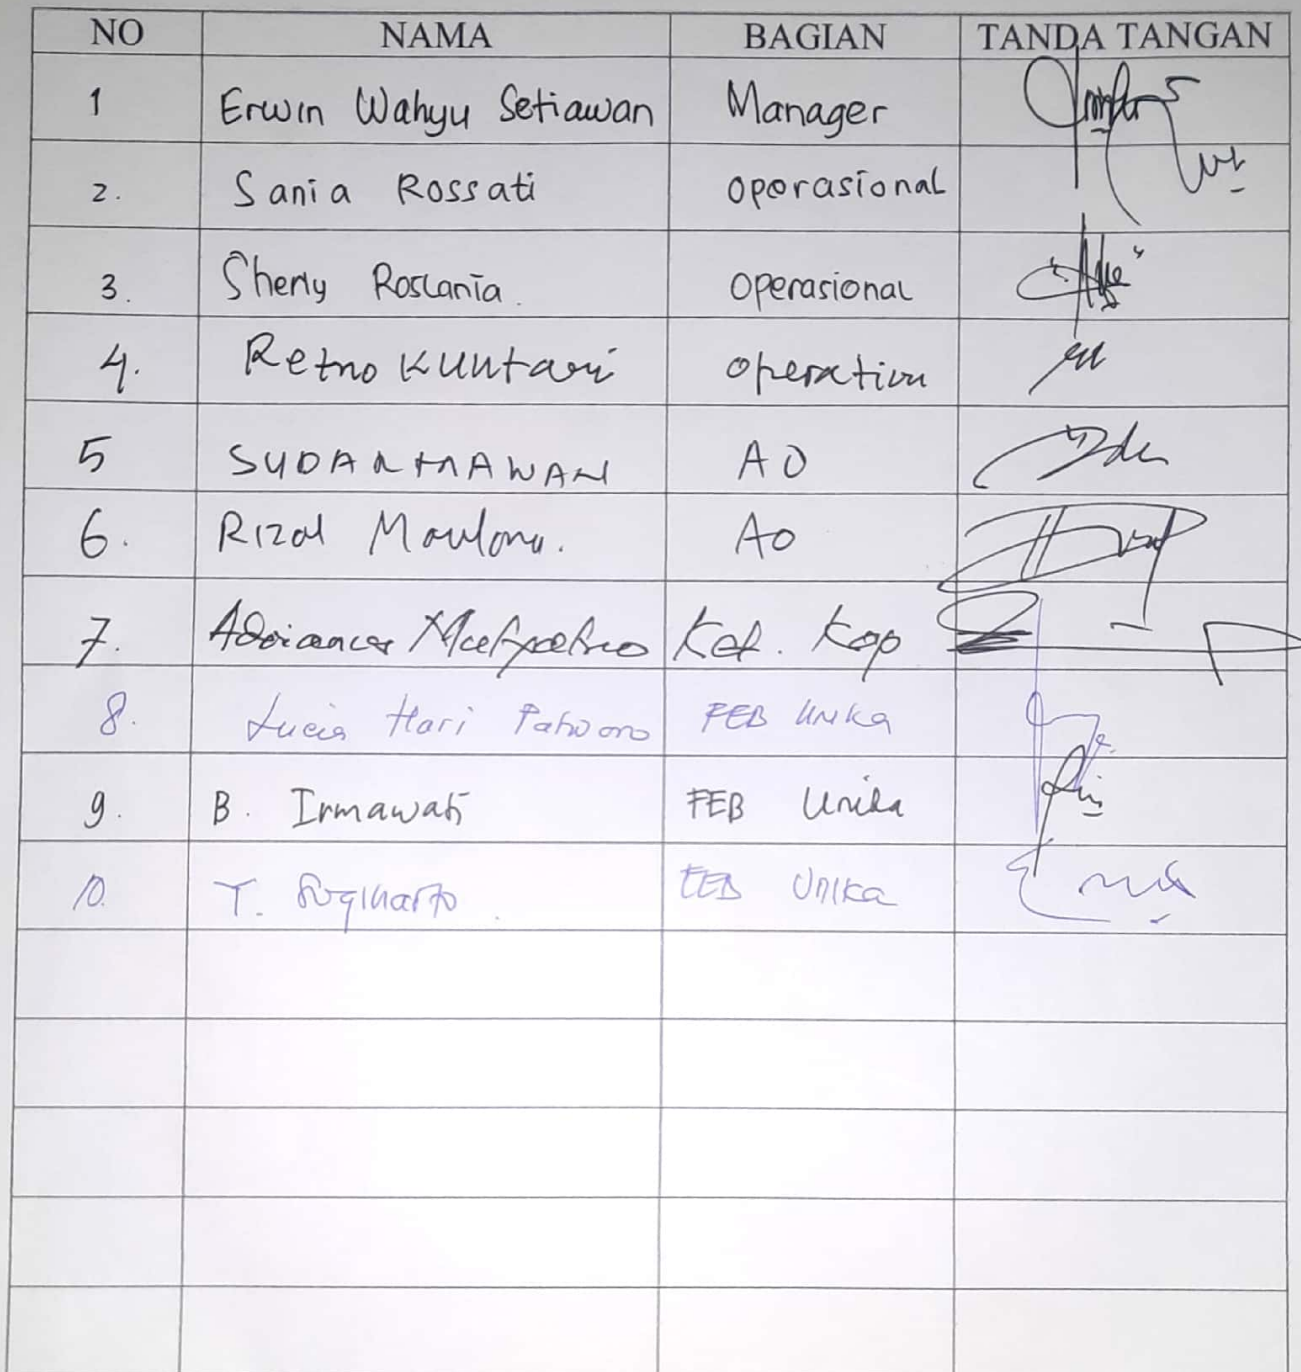 NO NAMA BAGIAN TANDA TANGAN
1 Erwin Wahyu Setiawan Manager
2. Sania Rossati Operasional
3. Sherly Roslania. Operasional
4. Retno Kuntari Operation
5 SUDARMAWAN AO
6. Rizal Maulana. AO
7. Ket. Kop
8. Lucia Hari Patworo FEB Unika
9. B. Irmawati FEB Unika
10. Y. Sugiharto. FEB Unika